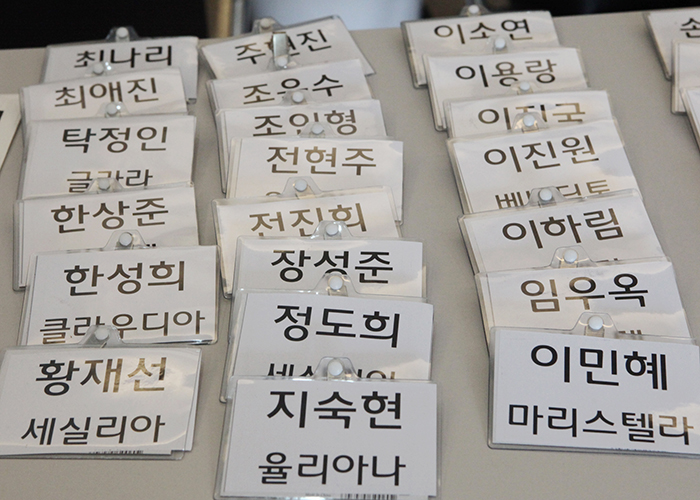 최나리
최애진
탁정인
글라라
한상준
한성희
클라우디아
황재선
세실리아
조윤수
조인형
전현주
전진희
장성준
정도희
지숙현
율리아나
이소연
이용랑
이진원
이하림
임우옥
이민혜
마리스텔라